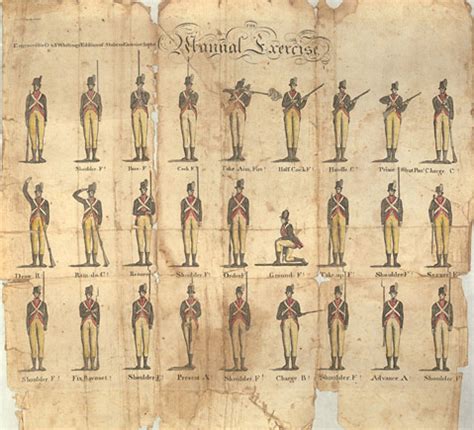 THE
Manual Exercise.
Shoulder F! Poise F! Cock F! Take Aim, Fire! Half Cock F! Handle C! Prime! Charge C!
Draw R! Ram do. C! Return R! Shoulder F! Order F! Ground F! Take up F! Shoulder F! Secure F!
Shoulder F! Fix Bayonet! Shoulder F! Present A! Shoulder F! Charge B! Shoulder F! Advance A! Shoulder F!